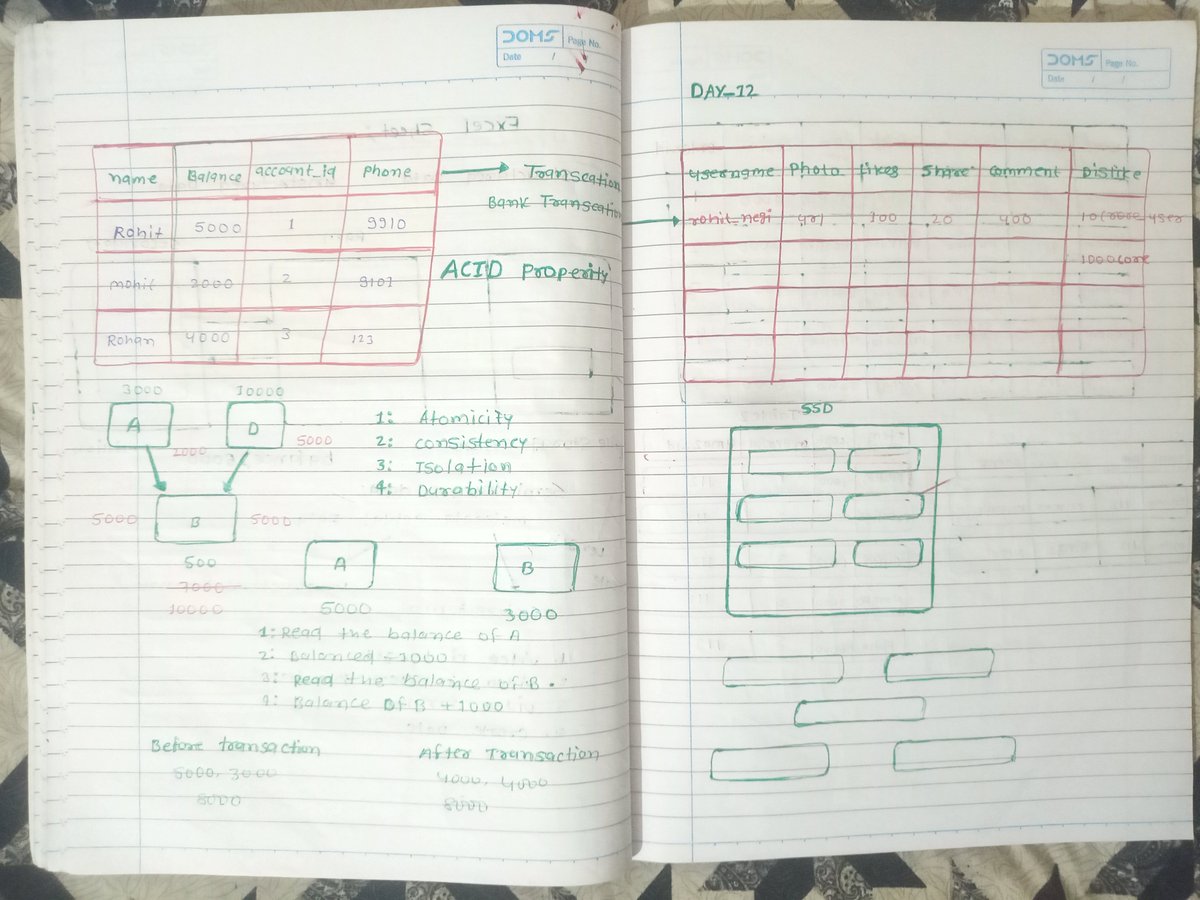 DOMS Page No.
Date / /
name Balance account_id phone
Rohit 5000 1 9910
mohit 2000 2 9107
Rohan 4000 3 123
Transcation
Bank Transcation
ACID Properity
3000 10000
A D
1000 5000
B
5000 5000
500
7000
10000
1: Atomicity
2: consistency
3: Isolation
4: Durability
A B
5000 3000
1: Read the balance of A
2: Balanced - 1000
3: Read the balance of B.
4: Balance Of B + 1000
Before transaction After Transaction
5000, 3000 4000, 4000
8000 8000
DOMS Page No.
Date / /
DAY_12
username Photo likes Share Comment Dislike
rohit_negi url 100 20 400 10 user
SSD